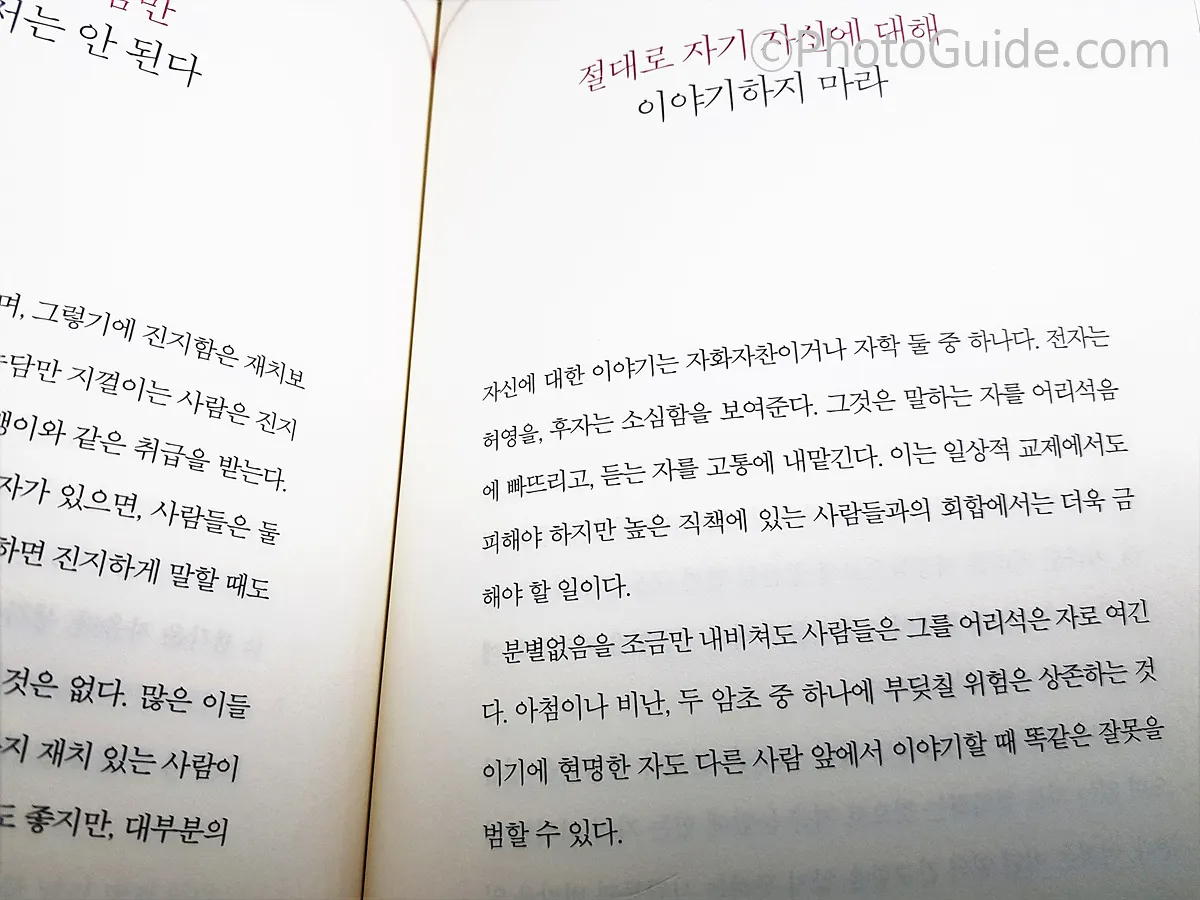 서는 안 된다
며, 그렇기에 진지함은 재치보
지껄이는 사람은 진지
같은 취급을 받는다.
자가 있으면, 사람들은 둘
하면 진지하게 말할 때도
것은 없다. 많은 이들
재치 있는 사람이
도 좋지만, 대부분의
©PhotoGuide.com
절대로 자기 자신에 대해
이야기하지 마라
자신에 대한 이야기는 자화자찬이거나 자학 둘 중 하나다. 전자는
허영을, 후자는 소심함을 보여준다. 그것은 말하는 자를 어리석음
에 빠뜨리고, 듣는 자를 고통에 내맡긴다. 이는 일상적 교제에서도
피해야 하지만 높은 직책에 있는 사람들과의 회합에서는 더욱 금
해야 할 일이다.
분별없음을 조금만 내비쳐도 사람들은 그를 어리석은 자로 여긴
다. 아첨이나 비난, 두 암초 중 하나에 부딪칠 위험은 상존하는 것
이기에 현명한 자도 다른 사람 앞에서 이야기할 때 똑같은 잘못을
범할 수 있다.